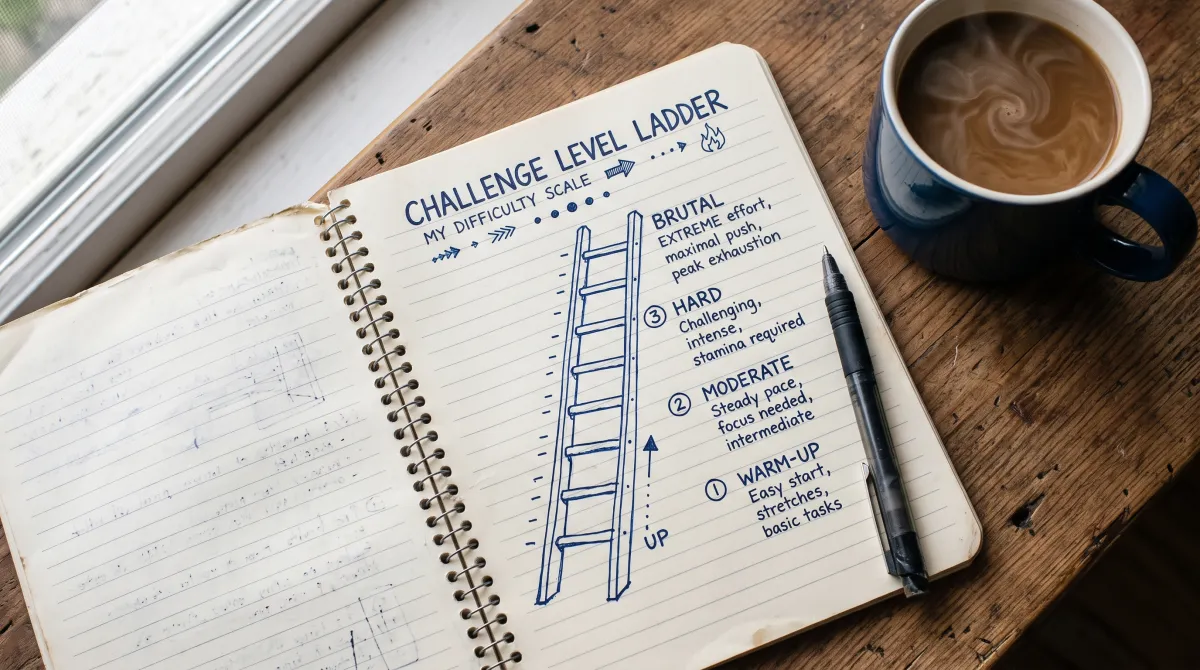 CHALLENGE LEVEL LADDER
MY DIFFICULTY SCALE
BRUTAL
EXTREME effort,
maximal push,
peak exhaustion
3 HARD
Challenging,
intense,
stamina required
2 MODERATE
Steady pace,
focus needed,
intermediate
1 WARM-UP
Easy start,
stretches,
basic tasks
UP